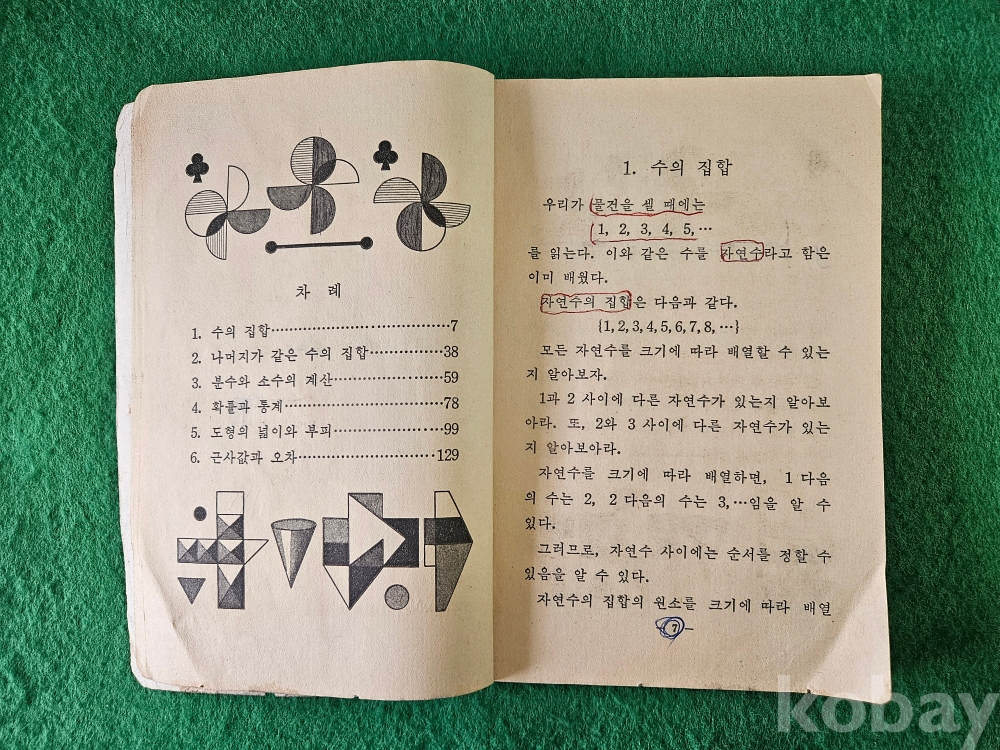 차 례
1. 수의 집합……………………………7
2. 나머지가 같은 수의 집합……………38
3. 분수와 소수의 계산…………………59
4. 확률과 통계…………………………78
5. 도형의 넓이와 부피…………………99
6. 근사값과 오차………………………129
1. 수의 집합
우리가 물견을 셀 때에는
1, 2, 3, 4, 5, …
를 읽는다. 이와 같은 수를 자연수라고 함은
이미 배웠다.
자연수의 집합은 다음과 같다.
{1, 2, 3, 4, 5, 6, 7, 8, …}
모든 자연수를 크기에 따라 배열할 수 있는
지 알아보자.
1과 2 사이에 다른 자연수가 있는지 알아보
아라. 또, 2와 3 사이에 다른 자연수가 있는
지 알아보아라.
자연수를 크기에 따라 배열하면, 1 다음
의 수는 2, 2 다음의 수는 3, …임을 알 수
있다.
그러므로, 자연수 사이에는 순서를 정할 수
있음을 알 수 있다.
자연수의 집합의 원소를 크기에 따라 배열
7
kobay